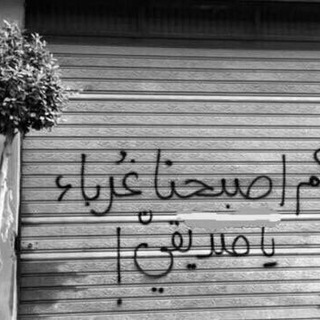 كم اصبحنا غُرباء
يا صديقي !